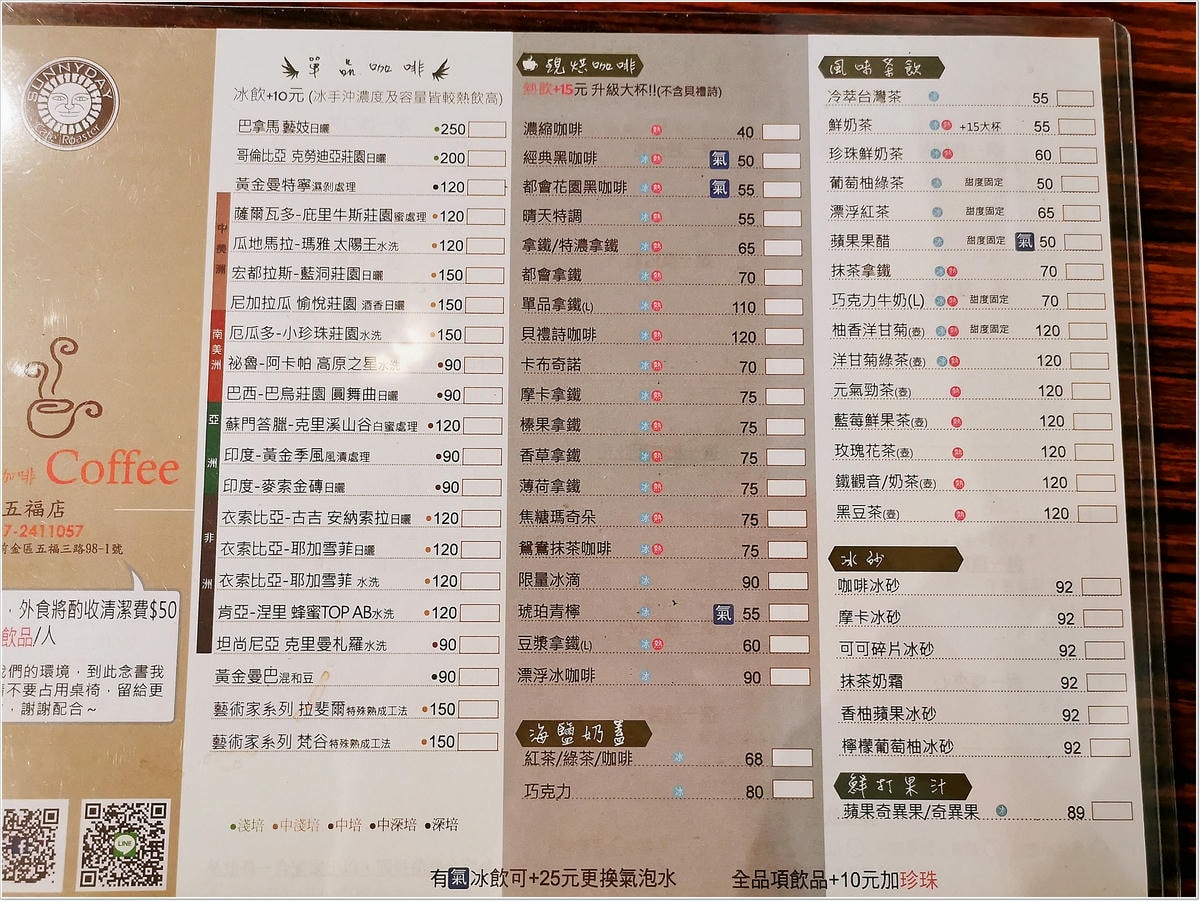 SUNNYDAY
Cafe Roaster
咖啡 Coffee
五福店
7-2411057
前金區五福三路98-1號
，外食將酌收清潔費$50
飲品/人
我們的環境，到此念書我
請不要占用桌椅，留給更
，謝謝配合～
LINE
單品咖啡
冰飲+10元 (冰手沖濃度及容量皆較熱飲高)
巴拿馬 藝妓日曬 250
哥倫比亞 克勞迪亞莊園日曬 200
黃金曼特寧濕剝處理 120
中美洲
薩爾瓦多-庇里牛斯莊園蜜處理 120
瓜地馬拉-瑪雅 太陽王水洗 120
宏都拉斯-藍洞莊園日曬 150
尼加拉瓜 愉悅莊園 酒香日曬 150
南美洲
厄瓜多-小珍珠莊園水洗 150
祕魯-阿卡帕 高原之星水洗 90
巴西-巴烏莊園 圓舞曲日曬 90
亞洲
蘇門答臘-克里溪山谷白蜜處理 120
印度-黃金季風風漬處理 90
印度-麥索金磚日曬 90
非洲
衣索比亞-古吉 安納索拉日曬 120
衣索比亞-耶加雪菲日曬 120
衣索比亞-耶加雪菲 水洗 120
肯亞-涅里 蜂蜜TOP AB水洗 120
坦尚尼亞 克里曼札羅水洗 90
黃金曼巴混和豆 90
藝術家系列 拉斐爾特殊熟成工法 150
藝術家系列 梵谷特殊熟成工法 150
●淺培 ●中淺培 ●中培 ●中深培 ●深培
現烘咖啡
熱飲+15元 升級大杯!!(不含貝禮詩)
濃縮咖啡 熱 40
經典黑咖啡 冰 熱 氣 50
都會花園黑咖啡 冰 熱 氣 55
晴天特調 冰 熱 55
拿鐵/特濃拿鐵 冰 熱 65
都會拿鐵 冰 熱 70
單品拿鐵(L) 冰 熱 110
貝禮詩咖啡 冰 熱 120
卡布奇諾 冰 熱 70
摩卡拿鐵 冰 熱 75
榛果拿鐵 冰 熱 75
香草拿鐵 冰 熱 75
薄荷拿鐵 冰 熱 75
焦糖瑪奇朵 冰 熱 75
鴛鴦抹茶咖啡 冰 熱 75
限量冰滴 冰 90
琥珀青檸 冰 氣 55
豆漿拿鐵(L) 冰 熱 60
漂浮冰咖啡 冰 90
海鹽奶蓋
紅茶/綠茶/咖啡 冰 68
巧克力 冰 80
風味茶飲
冷萃台灣茶 冰 55
鮮奶茶 冰 熱 +15大杯 55
珍珠鮮奶茶 冰 熱 60
葡萄柚綠茶 冰 甜度固定 50
漂浮紅茶 冰 甜度固定 65
蘋果果醋 冰 甜度固定 氣 50
抹茶拿鐵 冰 熱 70
巧克力牛奶(L) 冰 熱 甜度固定 70
柚香洋甘菊(壺) 冰 熱 甜度固定 120
洋甘菊綠茶(壺) 冰 熱 120
元氣勁茶(壺) 熱 120
藍莓鮮果茶(壺) 熱 120
玫瑰花茶(壺) 熱 120
鐵觀音/奶茶(壺) 熱 120
黑豆茶(壺) 熱 120
冰砂
咖啡冰砂 92
摩卡冰砂 92
可可碎片冰砂 92
抹茶奶霜 92
香柚蘋果冰砂 92
檸檬葡萄柚冰砂 92
鮮打果汁
蘋果奇異果/奇異果 冰 89
有氣冰飲可+25元更換氣泡水
全品項飲品+10元加珍珠